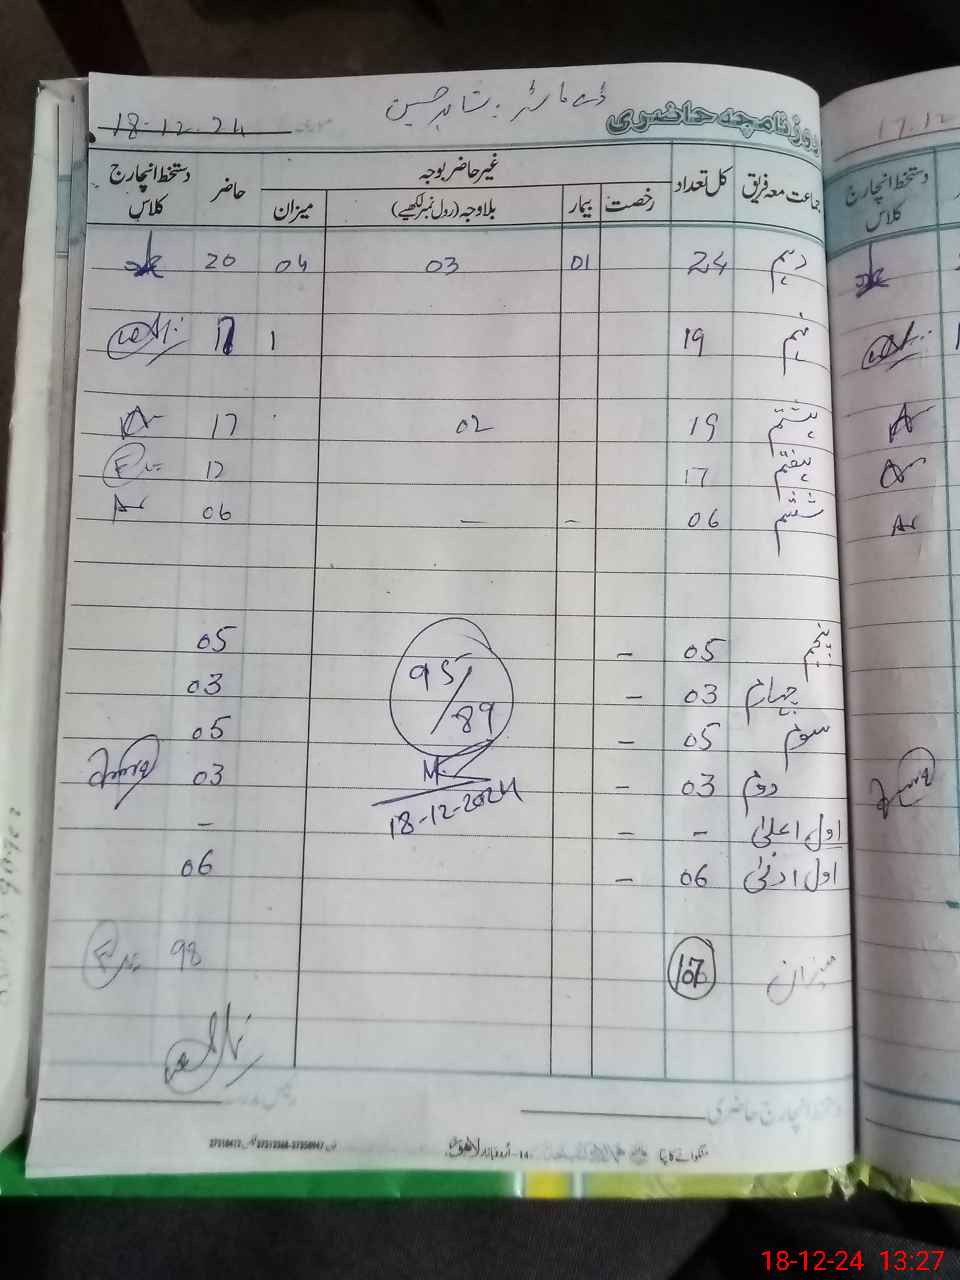 ڈے ماسٹر : شاہد حسین
روزنامچہ حاضری
18-12-24
جماعت معہ فریق کل تعداد غیر حاضر بوجہ حاضر دستخط انچارج کلاس
رخصت بیمار بلاوجہ (رول نمبر لکھیے) میزان
دہم 24 01 03 04 20
نہم 19 1
ہشتم 19 02 17
ہفتم 17 17
ششم 06 - - 06
پنجم 05 - 05
چہارم 03 - 03
سوم 05 - 05
دوم 03 - 03
اول اعلیٰ - - -
اول ادنیٰ 06 - 06
95/89
18-12-2024
میزان 98
دستخط انچارج حاضری
17.12
دستخط انچارج
کلاس
18-12-24 13:27